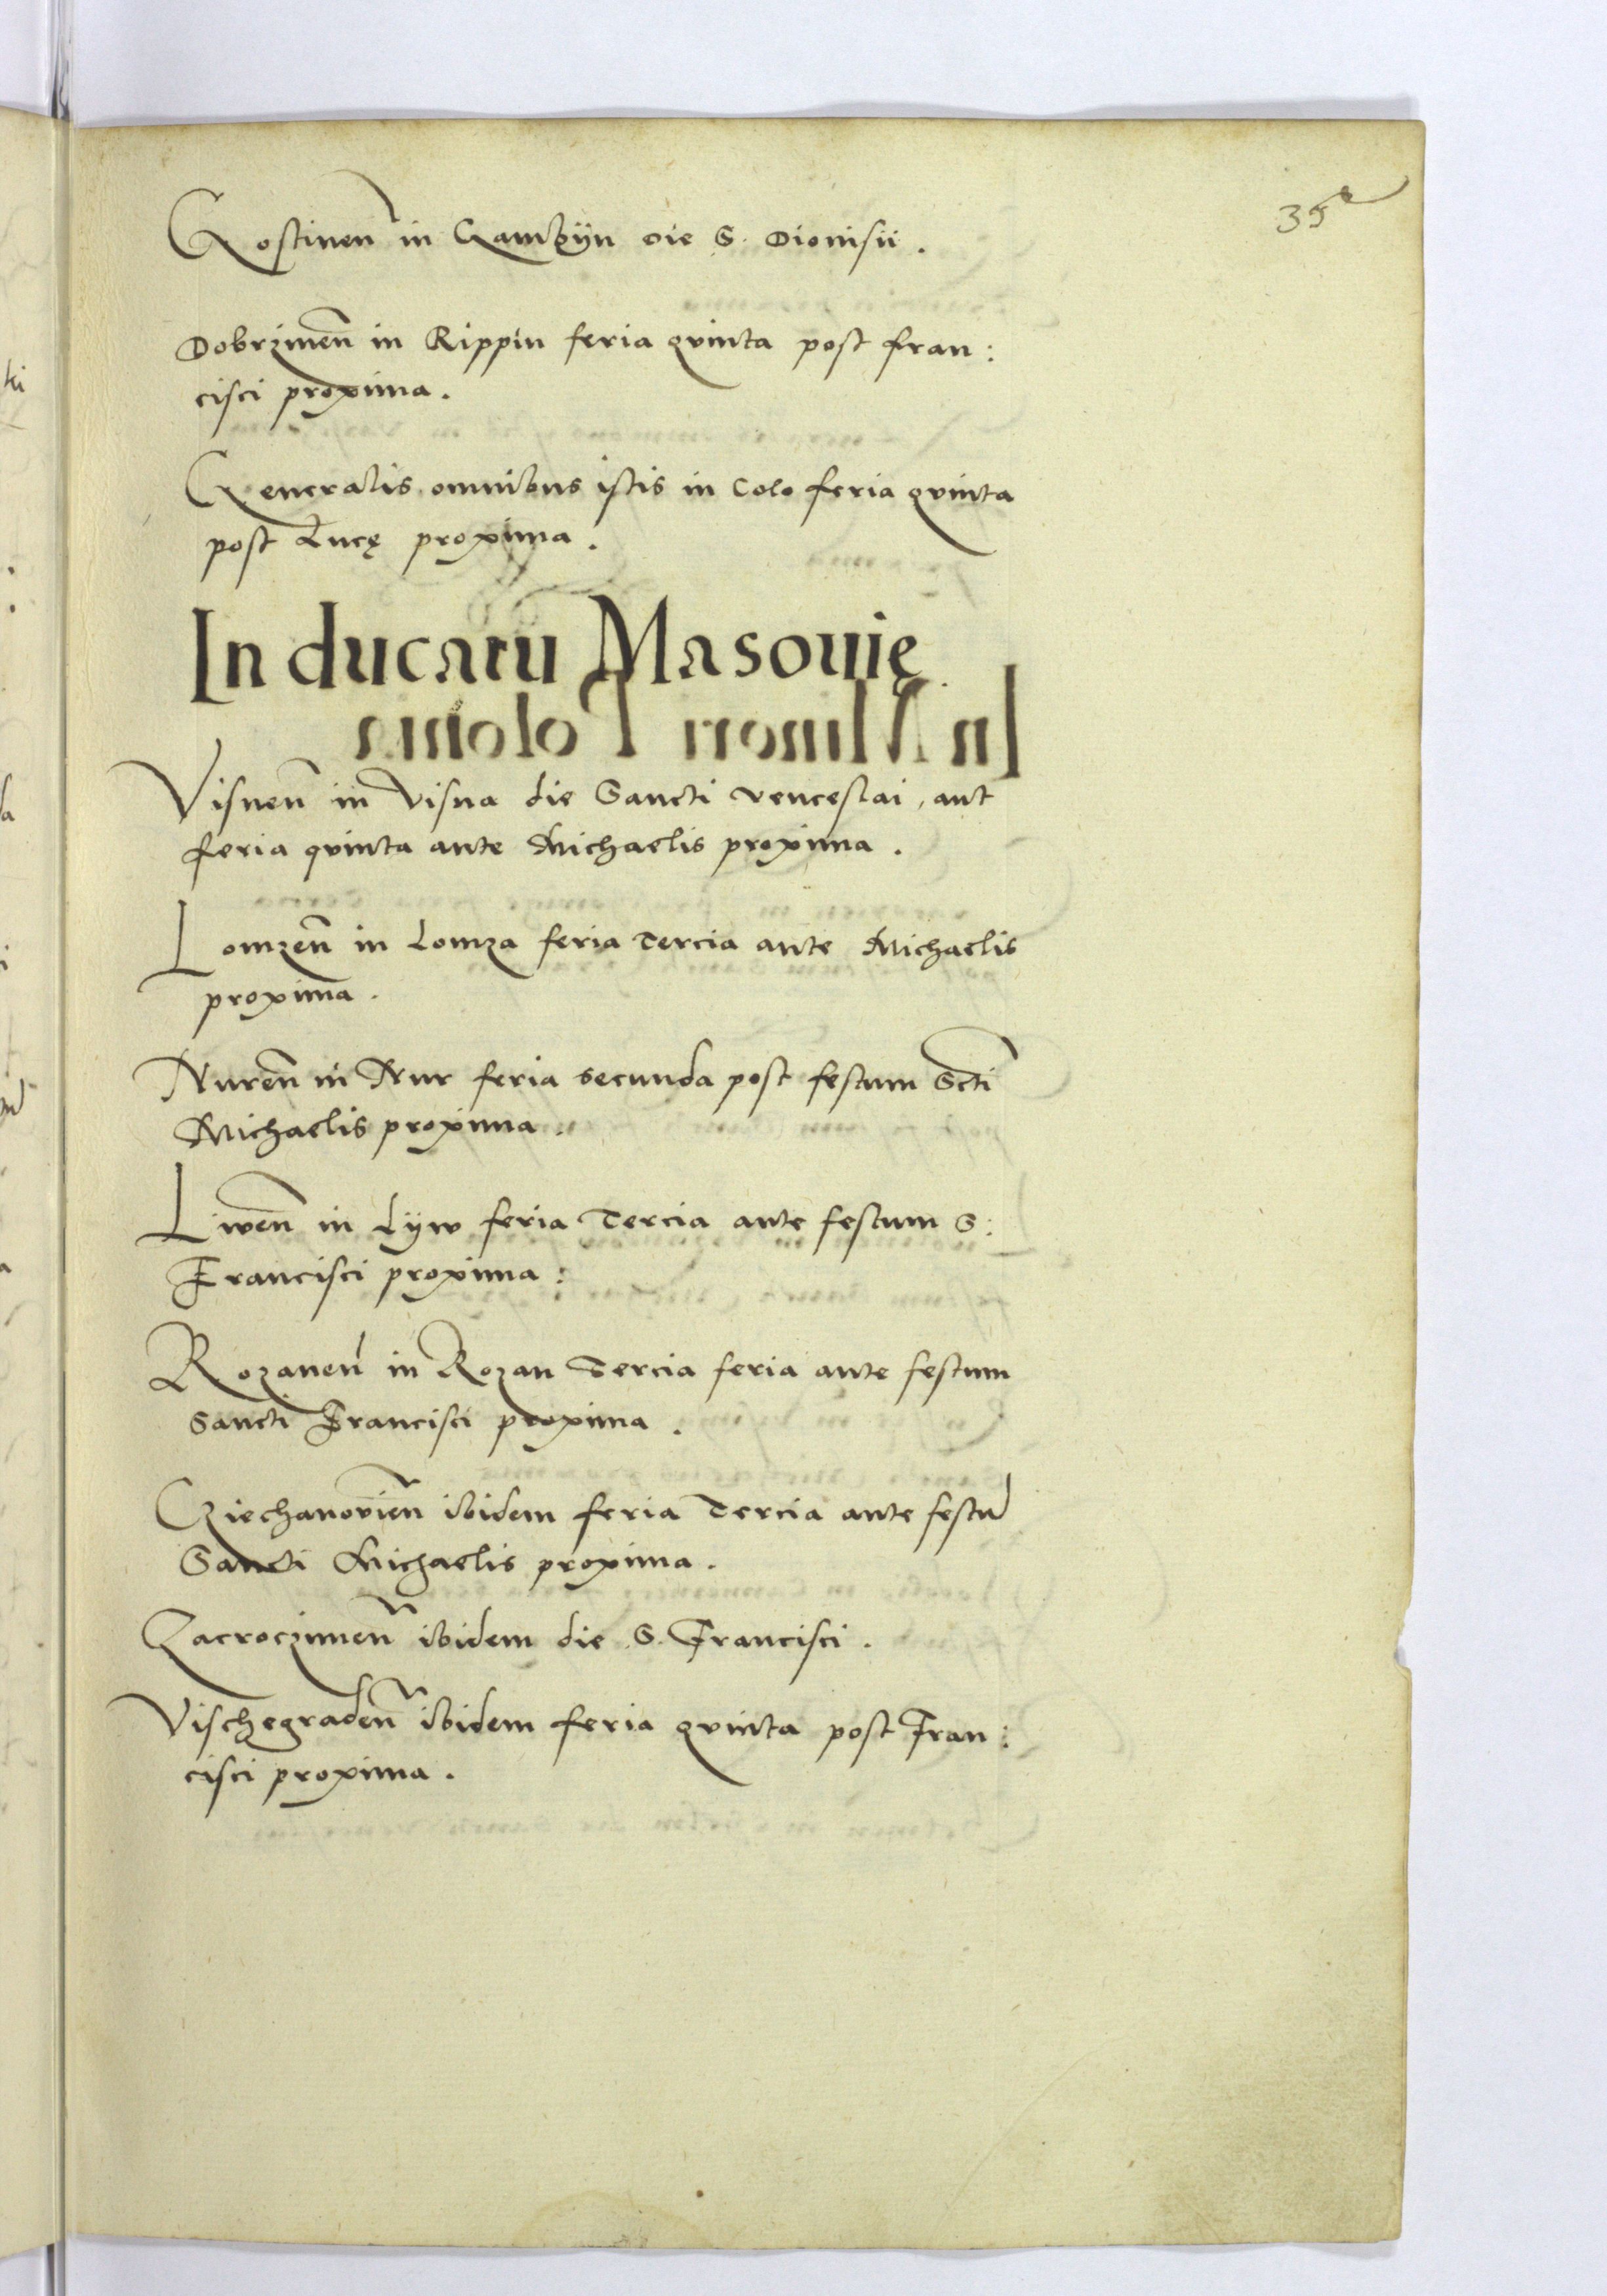 35
Gostinen̄ in Gambÿn die S. Dionisii.
Dobrzinen̄ in Rippin feria qvinta post fran:
cisci proxima.
Generalis omnibus istis in Colo feria qvinta
post Lucę proxima.
In ducatu Masouię
Visnen̄ in Visna die Sancti venceslai, aut
feria qvinta ante Michaelis proxima.
Lomzen̄ in Lomza feria Tercia ante Michaelis
proxima.
Nuren̄ in Nur feria secunda post festum Scti
Michaelis proxima.
Liwen̄ in Lÿw feria Tercia ante festum S:
Francisci proxima:
Rozanen̄ in Rozan Tercia feria ante festum
Sancti Francisci proxima.
Cziechanovien̄ ibidem feria Tercia ante festū
Sancti Michaelis proxima.
Zacroczimen̄ ibidem die S. Francisci.
Vischegraden̄ ibidem feria qvinta post Fran:
cisci proxima.